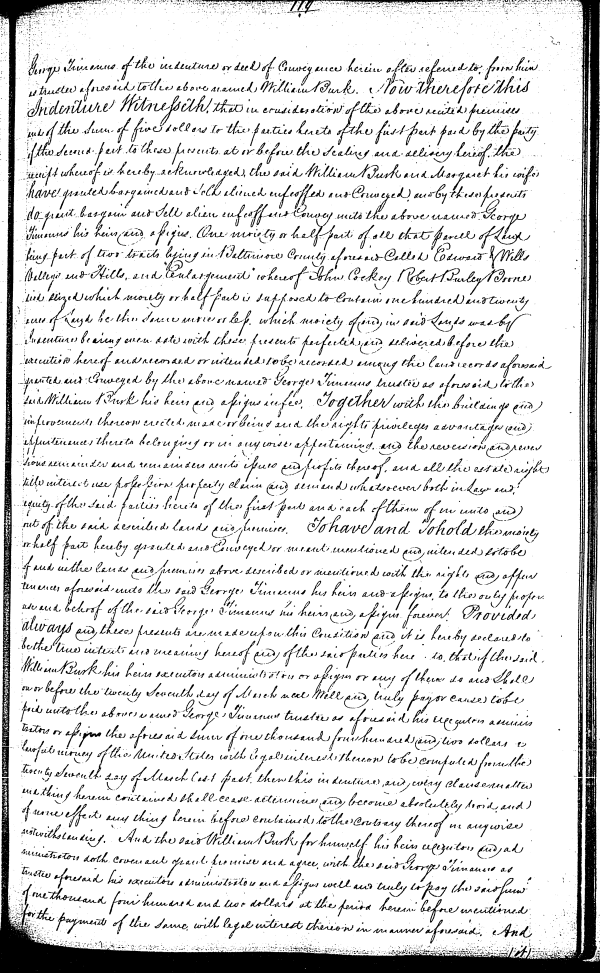 119
George Timanus of the indenture or deed of Conveyance herein after referred to, from him
as trustee aforesaid to the above named William Burk. Now therefore this
Indenture Witnesseth, that in consideration of the above recited premises
and of the sum of five dollars to the parties hereto of the first part paid by the party
of the second part to these presents at or before the sealing and delivery hereof, the
receipt whereof is hereby acknowledged, the said William Burk and Margaret his wife
have granted bargained and Sold aliened enfeoffed and Conveyed, and by these presents
do grant bargain and Sell alien enfeoff and Convey unto the above named George
Timanus his heirs and assigns. One moiety or half part of all that parcell of Land
being part of two tracts lying in Baltimore County aforesaid Called Edward & Wills
Valleys and Hills, and Enlargement whereof John Cockey Robert Burley Boone
died siezed which moiety or half part is supposed to Contain one hundred and twenty
acres of Land be the same more or less, which moiety of and in said Lands was by
Indenture bearing even date with these presents perfected and delivered before the
execution hereof and recorded or intended to be recorded among the land records aforesaid
granted and Conveyed by the above named George Timanus trustee as aforesaid to the
said William Burk his heirs and assigns in fee. Together with the buildings and
improvements thereon erected made or being and the rights privileges advantages and
appurtenances thereto belonging or in anywise appertaining, and the reversion and rever
sions remainder and remainders rents issues and profits thereof, and all the estate right
title interest use possession property claim and demand whatsoever both in Law and
equity of the said parties hereto of the first part and each of them of in unto and
out of the said described lands and premises. To have and To hold the moiety
or half part hereby granted and Conveyed or meant mentioned and intended so to be
of and in the lands and premises above described or mentioned with the rights and appur
tenances aforesaid unto the said George Timanus his heirs and assigns, to the only proper
use and behoof of the said George Timanus his heirs and assigns forever. Provided
always and these presents are made upon this Condition and it is hereby declared to
be the true intent and meaning hereof and of the said parties here to, that if the said
William Burk his heirs executors administrators or assigns or any of them do and Shall
on or before the twenty Seventh day of March next Well and truly pay or cause to be
paid unto the above named George Timanus trustee as aforesaid his executors adminis
trators or assigns the aforesaid sum of one thousand four hundred and two dollars
lawful money of the United States with legal interest thereon to be computed from the
twenty Seventh day of March last past, then this indenture and every clause matter
and thing herein contained shall cease determine and become absolutely void, and
of none effect any thing herein before contained to the contrary thereof in anywise
notwithstanding. And the said William Burk for himself his heirs executors and ad
ministrators doth covenant grant promise and agree, with the said George Timanus as
trustee aforesaid his executors administrators and assigns well and truly to pay the said sum
of one thousand four hundred and two dollars at the period herein before mentioned
for the payment of the same with legal interest thereon in manner aforesaid. And
it